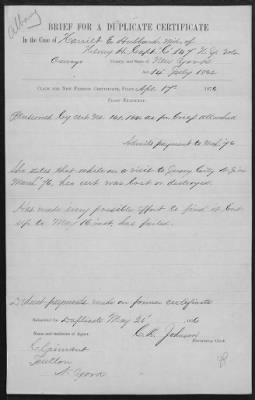 Albany
BRIEF FOR A DUPLICATE CERTIFICATE
In the Case of Harriet E. Hubbard, Wid. of
Henry H. Capt. C. 147 N.Y. Vols
Oswego County, and State of New York
14 July 1862
CLAIM FOR NEW PENSION CERTIFICATE, FILED Apl 17th 1876
FROM EVIDENCE.
Pensioned by cert No. as per brief attached
Admits payment to Mch /76
She states that while on a visit to Jersey City N.J. in
March /76, her cert was lost or destroyed.
Has made every possible effort to find it but
up to May 16 inst, has failed.
payments made on former certificate
Submitted for Duplicate May 26, 1876
Name and residence of Agent. C.R. Johnson
Examining Clerk
Claimant
Fulton
N. York